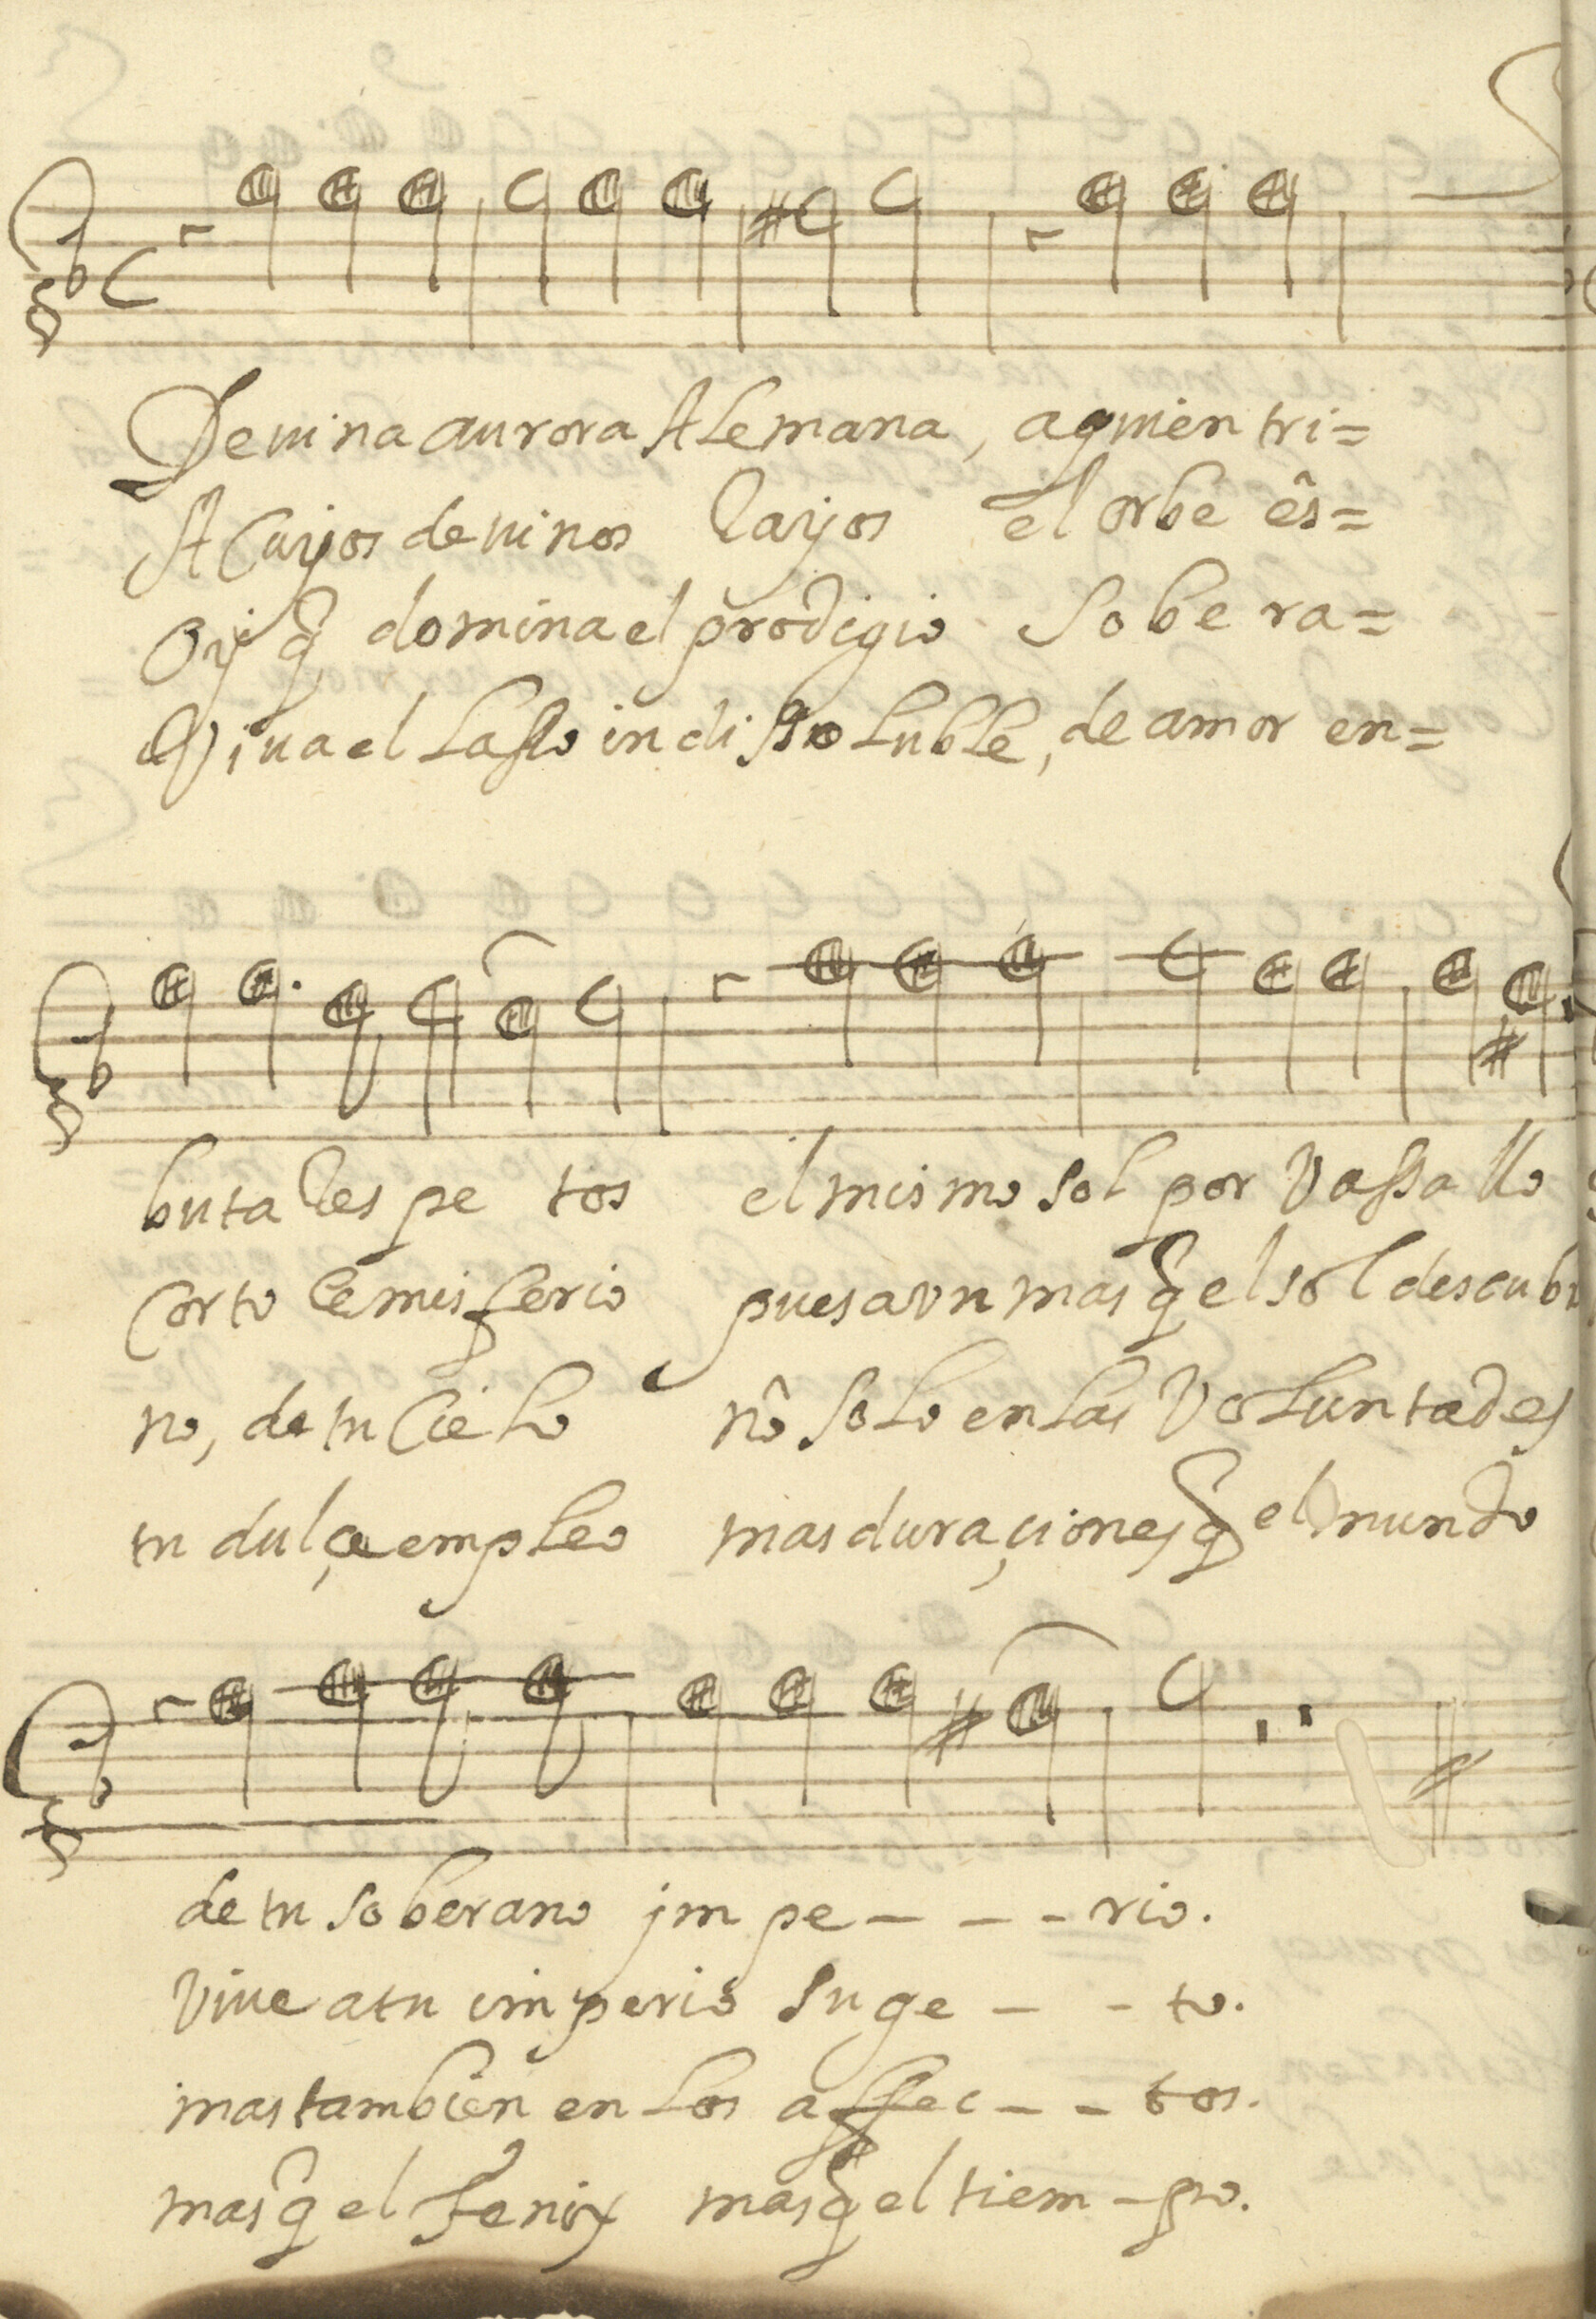 Deuina aurora Alemana, aquien tri=
A Cuyos deuinos Rayos el orbe ês=
Oy q̃ domina el prodigio Sobera=
Viua el Lasso indissoluble, de amor en=
buta Respe tos el mismo sol por Vassallo
Corto Remisferio pues avn mas q̃ el sol descubr
no, de tu Cielo nô Solo en las Voluntades
tu dulçe empleo mas duraçiones q̃ el mundo
de tu Soberano jmpe - - - rio.
Viue atu imperio Suge - - to.
mas tambien en Los affec - - tos.
mas q̃ el Fenix mas q̃ el tiem - po.